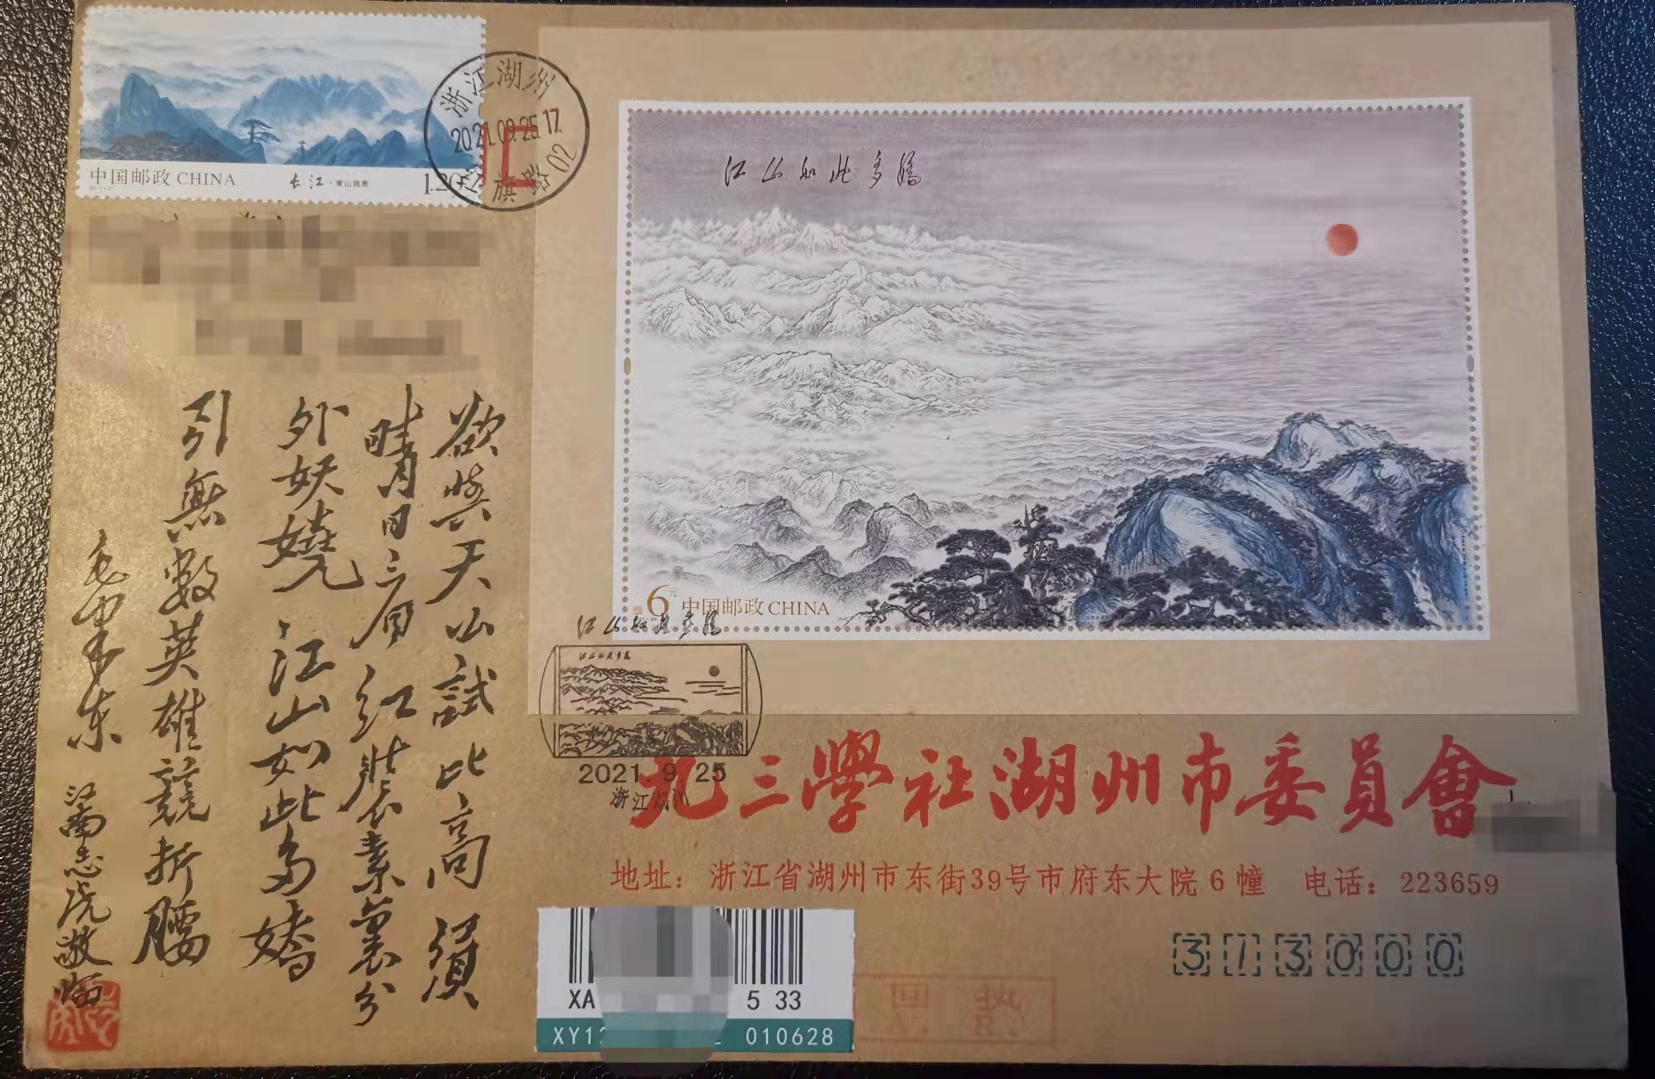 中国邮政 CHINA
长江·
1.20
浙江湖州
2021.09.25 17
红旗路02
江山如此多娇
6元
中国邮政 CHINA
江山如此多娇
江山如此多娇
2021.9.25
浙江湖州
欲與天山試比高 須
晴日三月 红裝素裹分
外妖嬈 江山如此多嬌
引無數英雄競折腰
毛泽东
九三學社湖州市委員會
地址：浙江省湖州市东街39号市府东大院6幢 电话：223659
313000
XA
5 33
XY12
010628